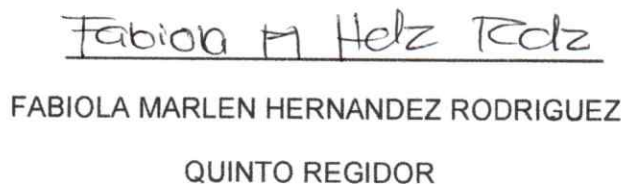 Fabiola M Hdz Rdz
FABIOLA MARLEN HERNANDEZ RODRIGUEZ
QUINTO REGIDOR